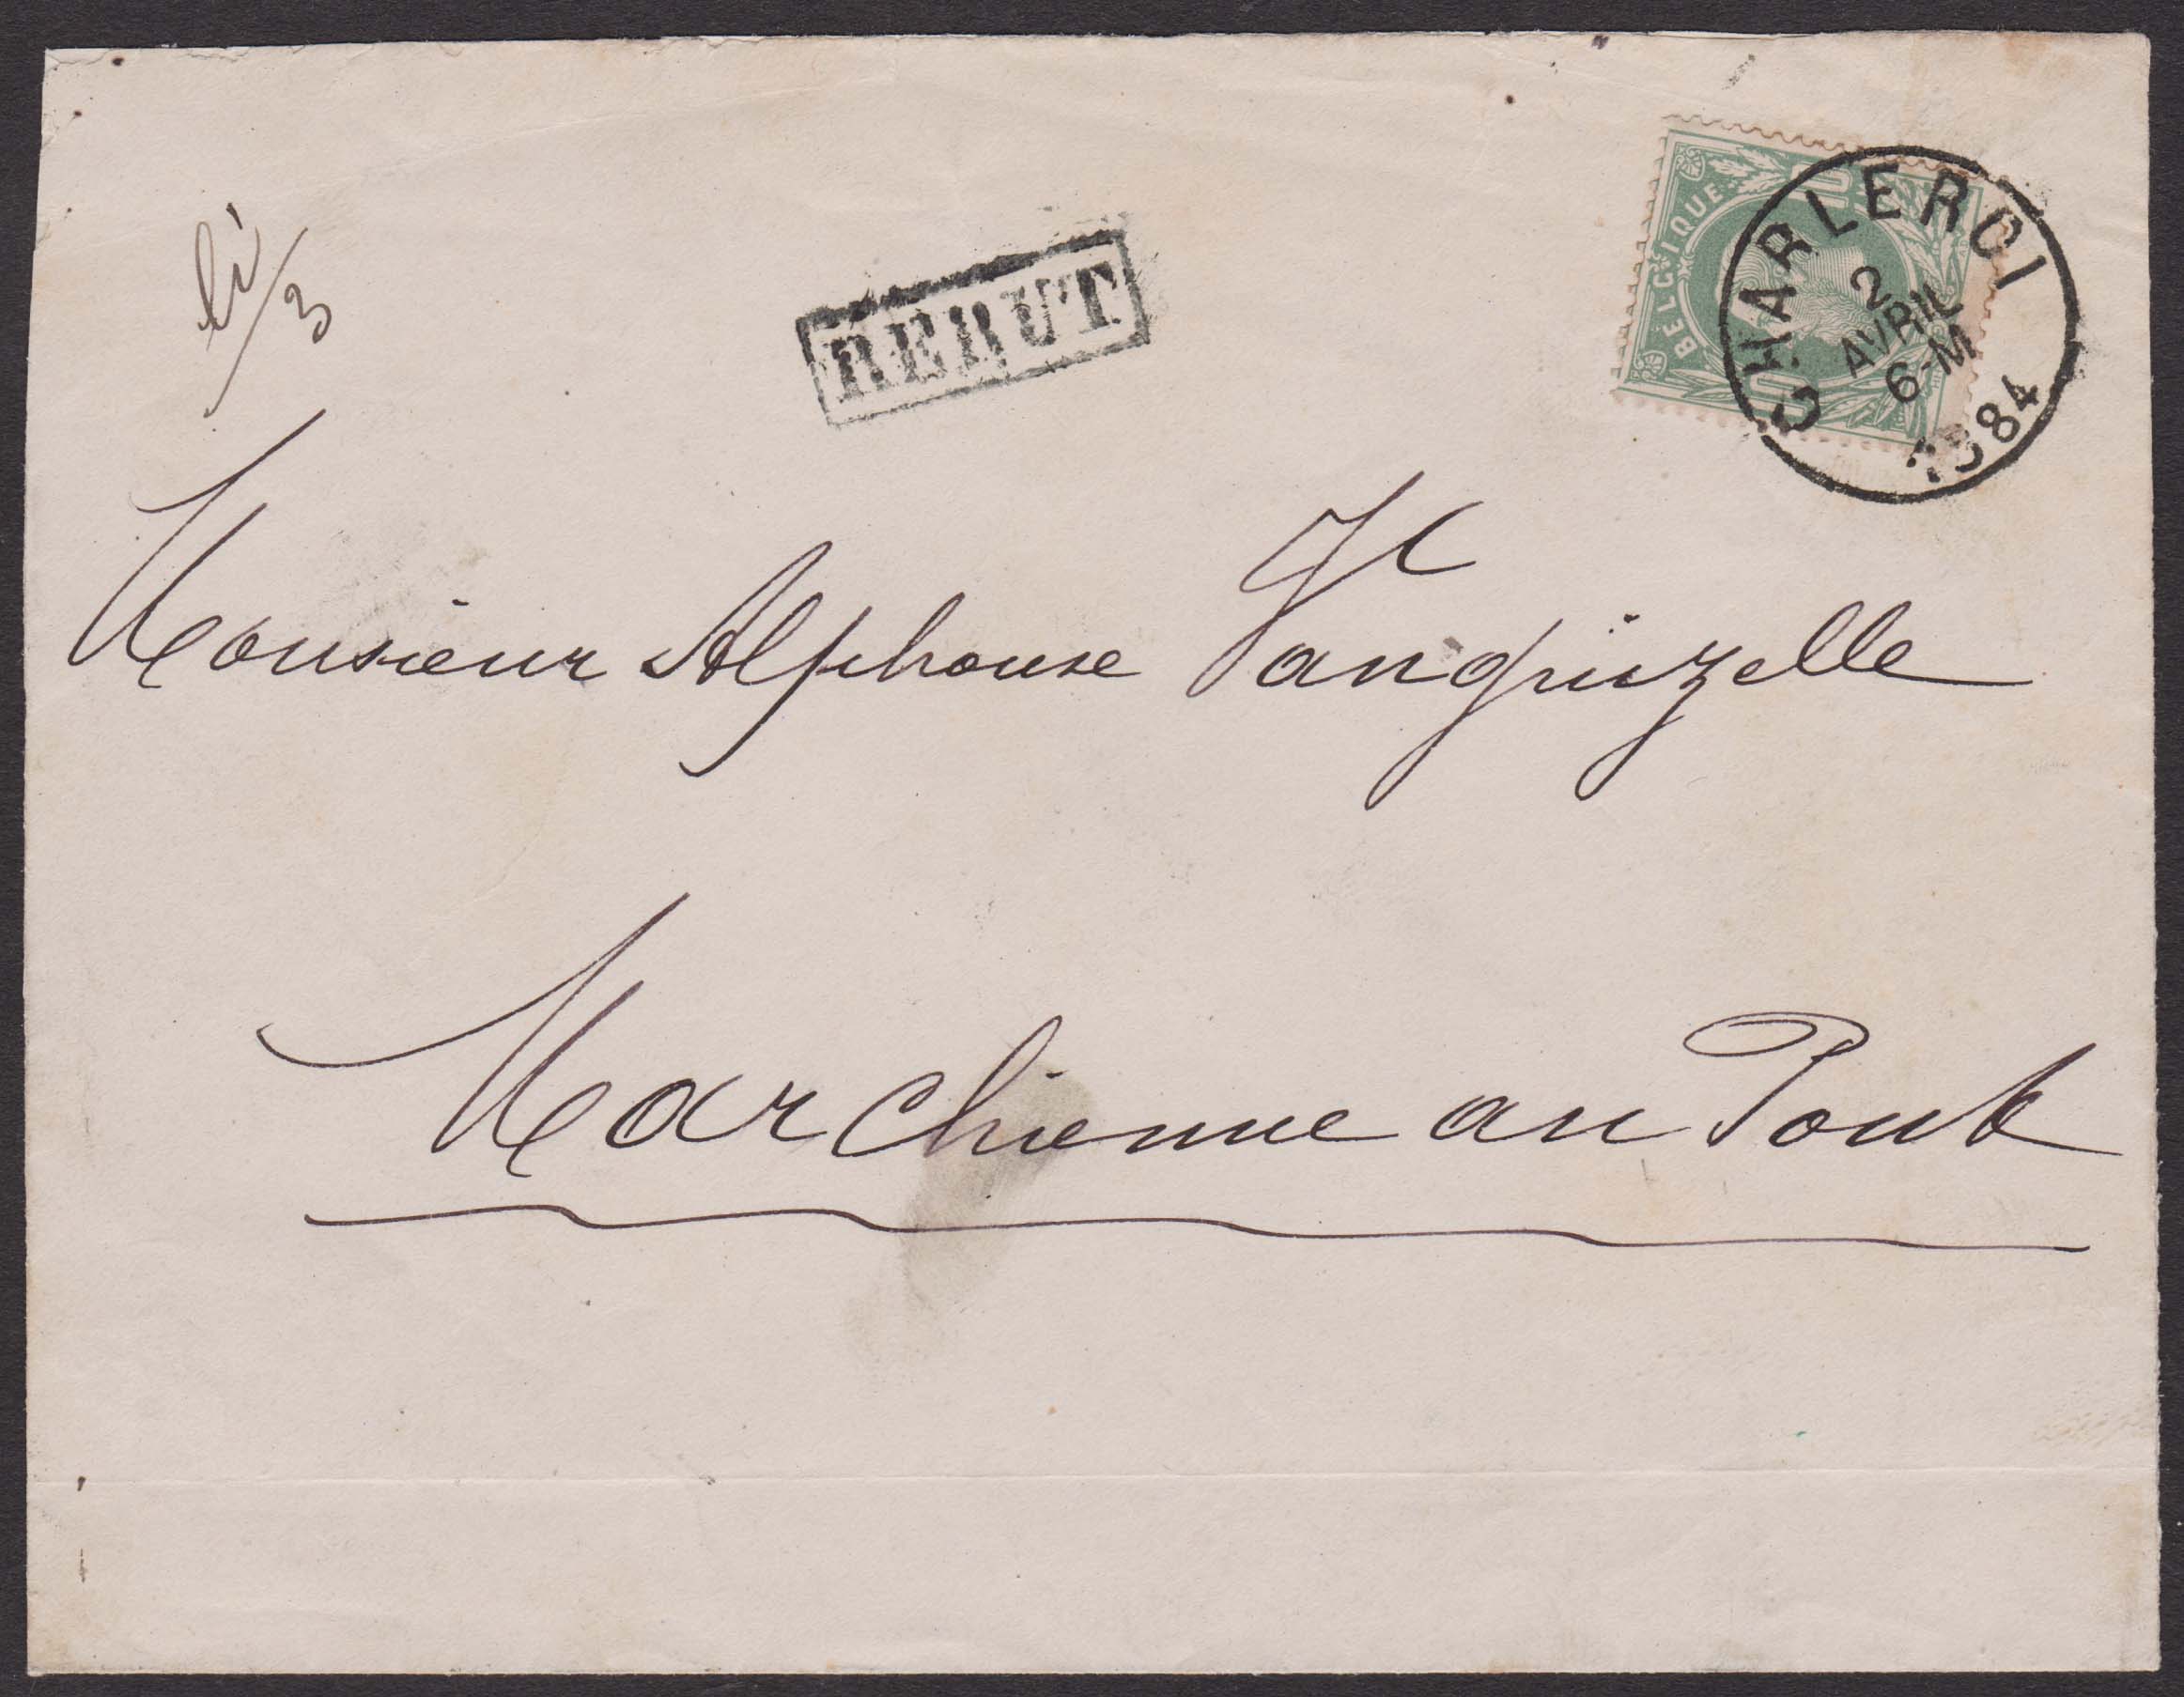 li/3
REBUT
BELGIQUE
CHARLEROI
2
AVRIL
6-M
1884
Monsieur Alphonse Vanguizelle
Marchienne au Pont